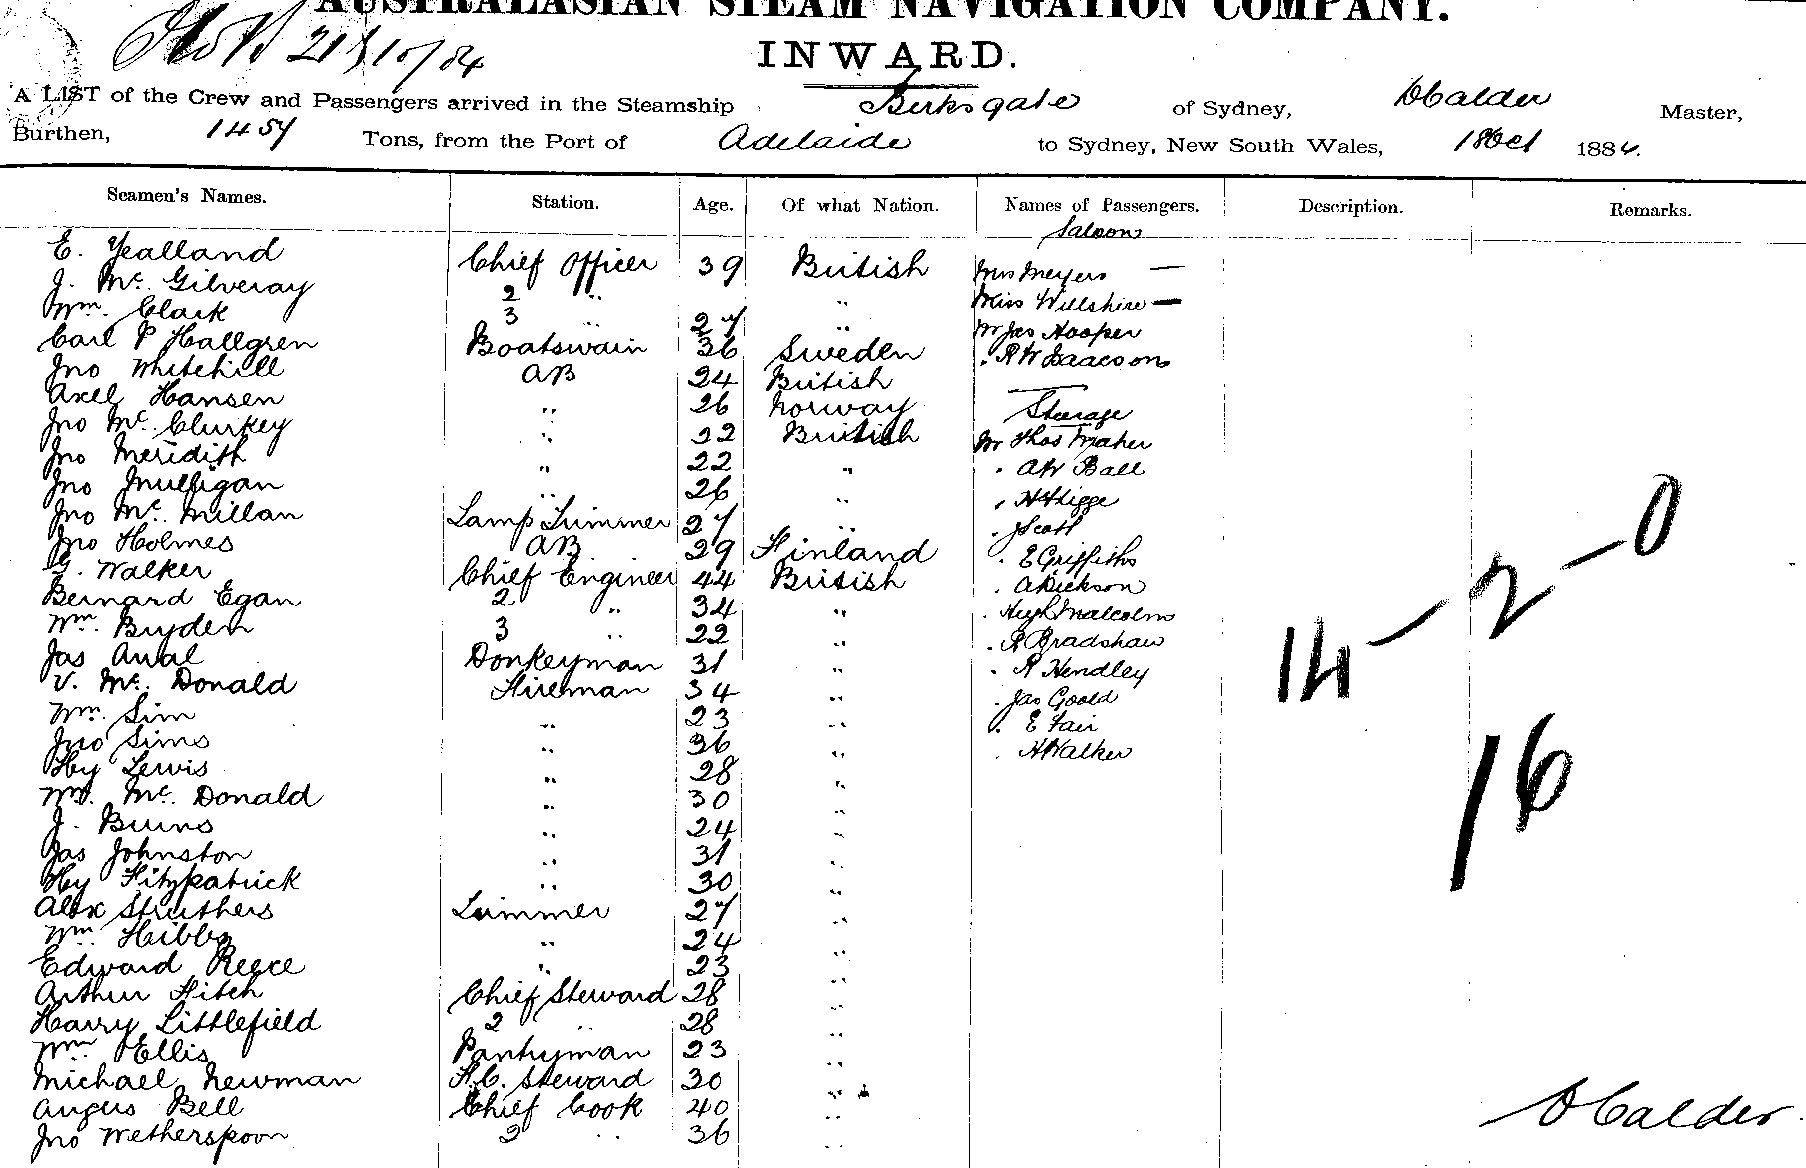 AUSTRALASIAN STEAM NAVIGATION COMPANY.
21/10/84
INWARD.
A LIST of the Crew and Passengers arrived in the Steamship Birksgate of Sydney, D Calder Master,
Burthen, 1457 Tons, from the Port of Adelaide to Sydney, New South Wales, 18 Oct 1884.
Seamen's Names. Station. Age. Of what Nation. Names of Passengers. Description. Remarks.
Saloon
E. Yealland Chief Officer 39 British Mrs Meyers —
J. Mc. Gilveray 2 " " Miss Willshire —
Wm. Clark 3 " 27 " Mr Jas Hooper
Carl P Hallgren Boatswain 36 Sweden " R W Isaacson
Jno Whitehill AB 24 British
Axel Hansen " 26 Norway Steerage
Jno Mc. Clurkey " 22 British Mr Thos Maher
Jno Meredith " 22 " " A W Ball
Jno Mulligan " 26 " " H Higge
Jno Mc. Millan Lamp Trimmer 27 " " J Scott
Jno Holmes AB 29 Finland " E Griffiths
G. Walker Chief Engineer 44 British A Dickson
Bernard Egan 2 " 34 " " Hugh Malcolm
Wm. Bryden 3 " 22 " " R Bradshaw
Jas Aual Donkeyman 31 " " R Hendley
V. Mc. Donald Fireman 34 " " Jas Goold
Wm. Sim " 23 " " E Fair
Jno Sims " 36 " " H Walker
Hy Lewis " 28 "
Wm. Mc. Donald " 30 "
J. Burns " 24 "
Jas Johnston " 31 "
Hy Fitzpatrick " 30 "
Alex Struthers Trimmer 27 "
Wm. Hibbs " 24 "
Edward Reece " 23 "
Arthur Fitch Chief Steward 28 "
Harry Littlefield 2 " 28 "
Wm Ellis Pantryman 23 "
Michael Newman F.C. Steward 30 "
Angus Bell Chief Cook 40 "
Jno Wetherspoon 2 " 36 "
14 – 2 – 0
16
D Calder.